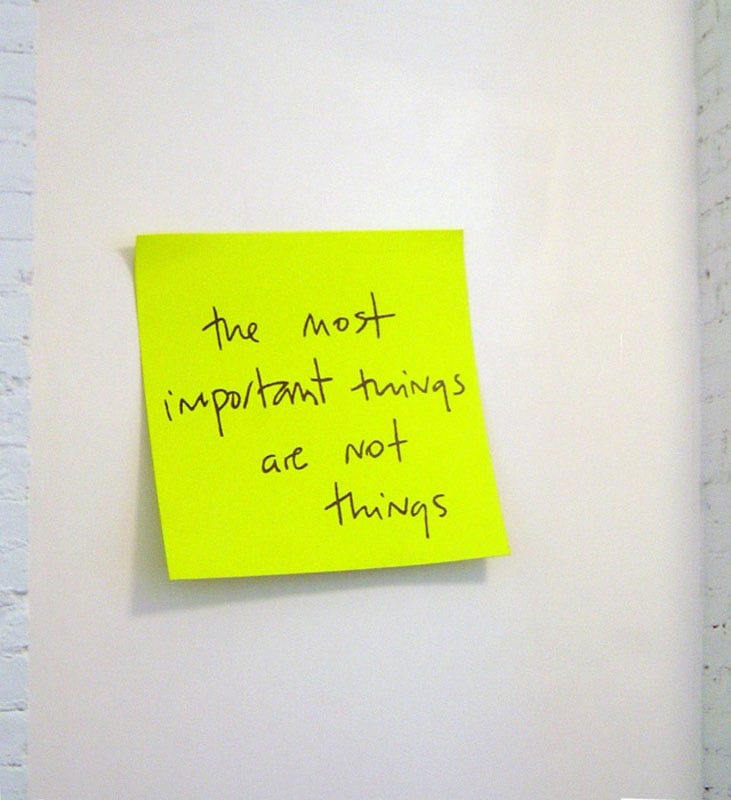 the most
important things
are not
things